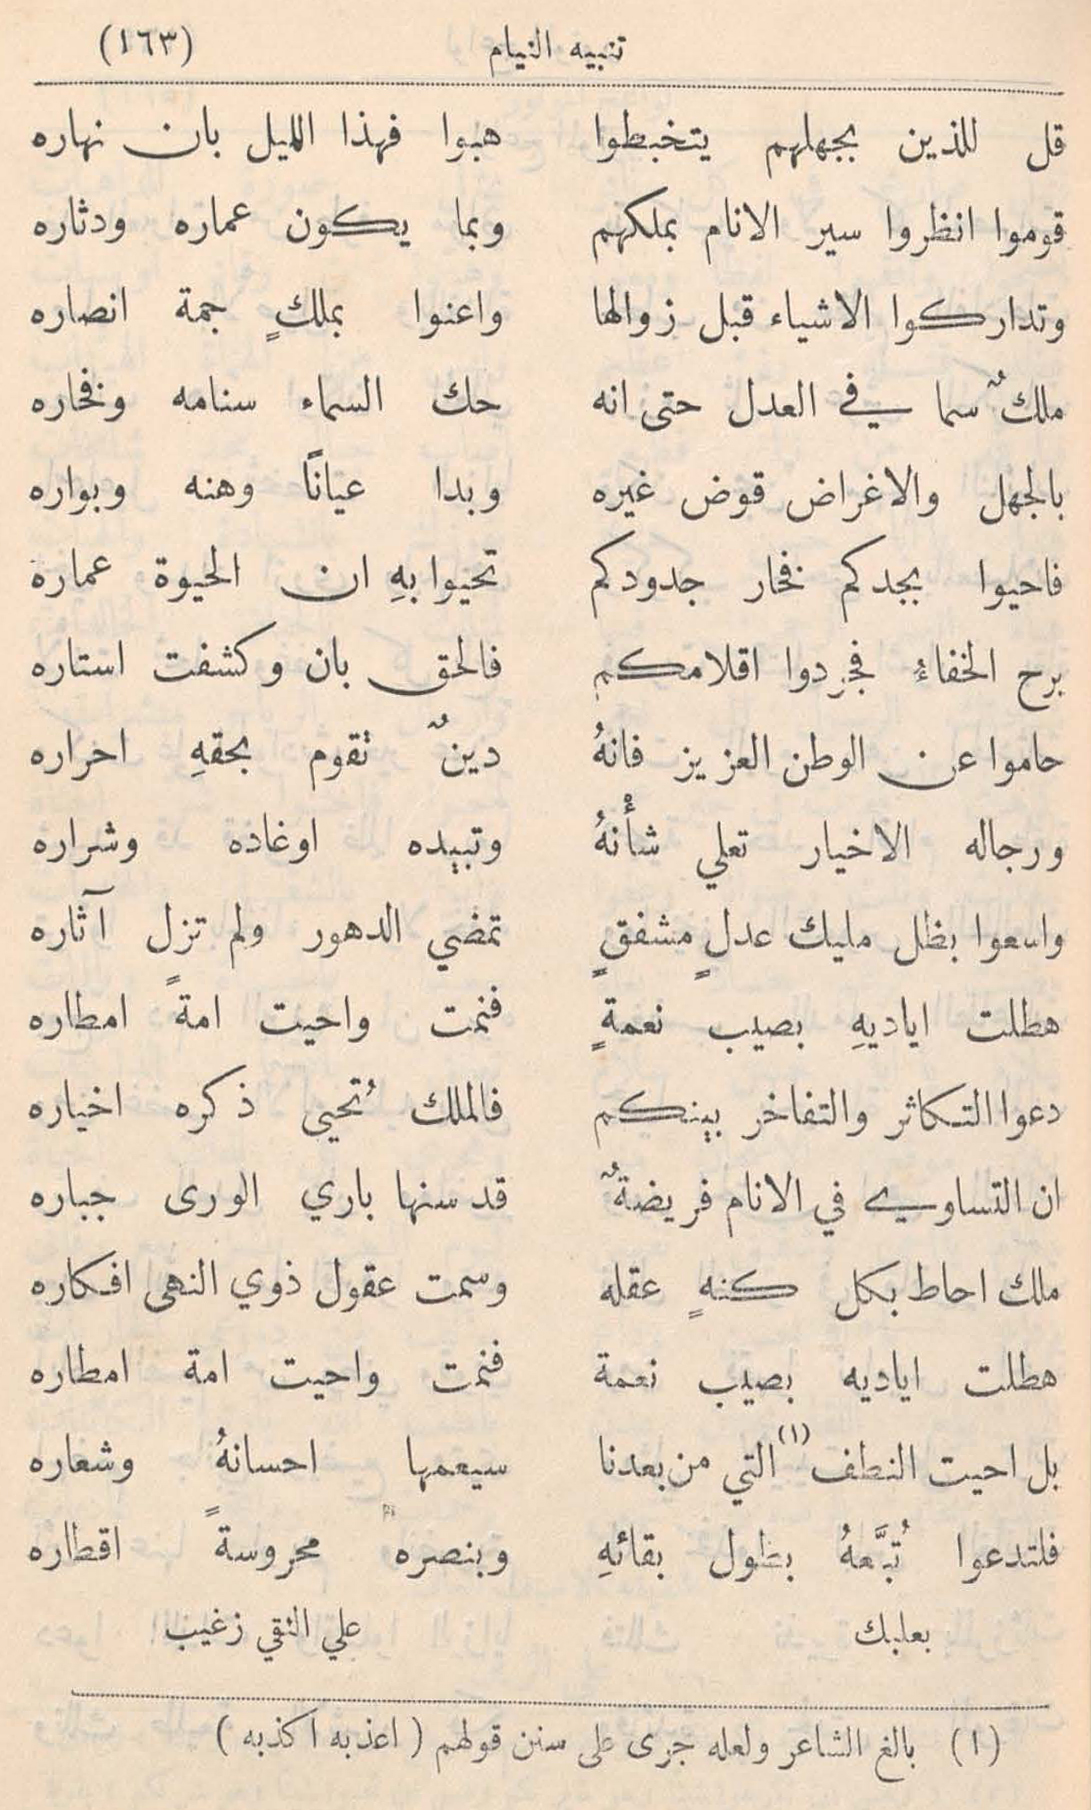 تنبيه النيام (١٦٣)
قل للذين بجهلهم يتخبطوا هبوا فهذا الليل بان نهاره
قوموا انظروا سير الانام بملكهم وبما يكون عماره ودثاره
وتداركوا الاشياء قبل زوالها واعنوا بملكٍ جمة انصاره
ملكٌ سما في العدل حتى انه حك السماء سنامه وفخاره
بالجهل والاغراض قوض غيره وبدا عيانًا وهنه وبواره
فاحيوا بجدكم فخار جدودكم تحيوا بهِ ان الحيوة عماره
برح الخفاءُ فجردوا اقلامكم فالحق بان وكشفت استاره
حاموا عن الوطن العزيز فانهُ دينٌ تقوم بحقهِ احراره
ورجاله الاخيار تعلي شأْنهُ وتبيده اوغاده وشراره
واسعوا بظل مليك عدلٍ مشفقٍ تمضي الدهور ولم تزل آثاره
هطلت اياديهِ بصيب نعمةٍ فنمت واحيت امةً امطاره
دعوا التكاثر والتفاخر بينكم فالملك تُحيي ذكره اخياره
ان التساوي في الانام فريضةٌ قد سنها باري الورى جباره
ملك احاط بكل كنهٍ عقله وسمت عقول ذوي النهى افكاره
هطلت اياديه بصيب نعمة فنمت واحيت امة امطاره
بل احيت النطف (١) التي من بعدنا سيعمها احسانهُ وشعاره
فلتدعوا تُبَّعهُ بطول بقائهِ وبنصره محروسةً اقطاره
بعلبك علي النقي زغيب
(١) بالغ الشاعر ولعله جرى على سنن قولهم (اعذبه اكذبه)